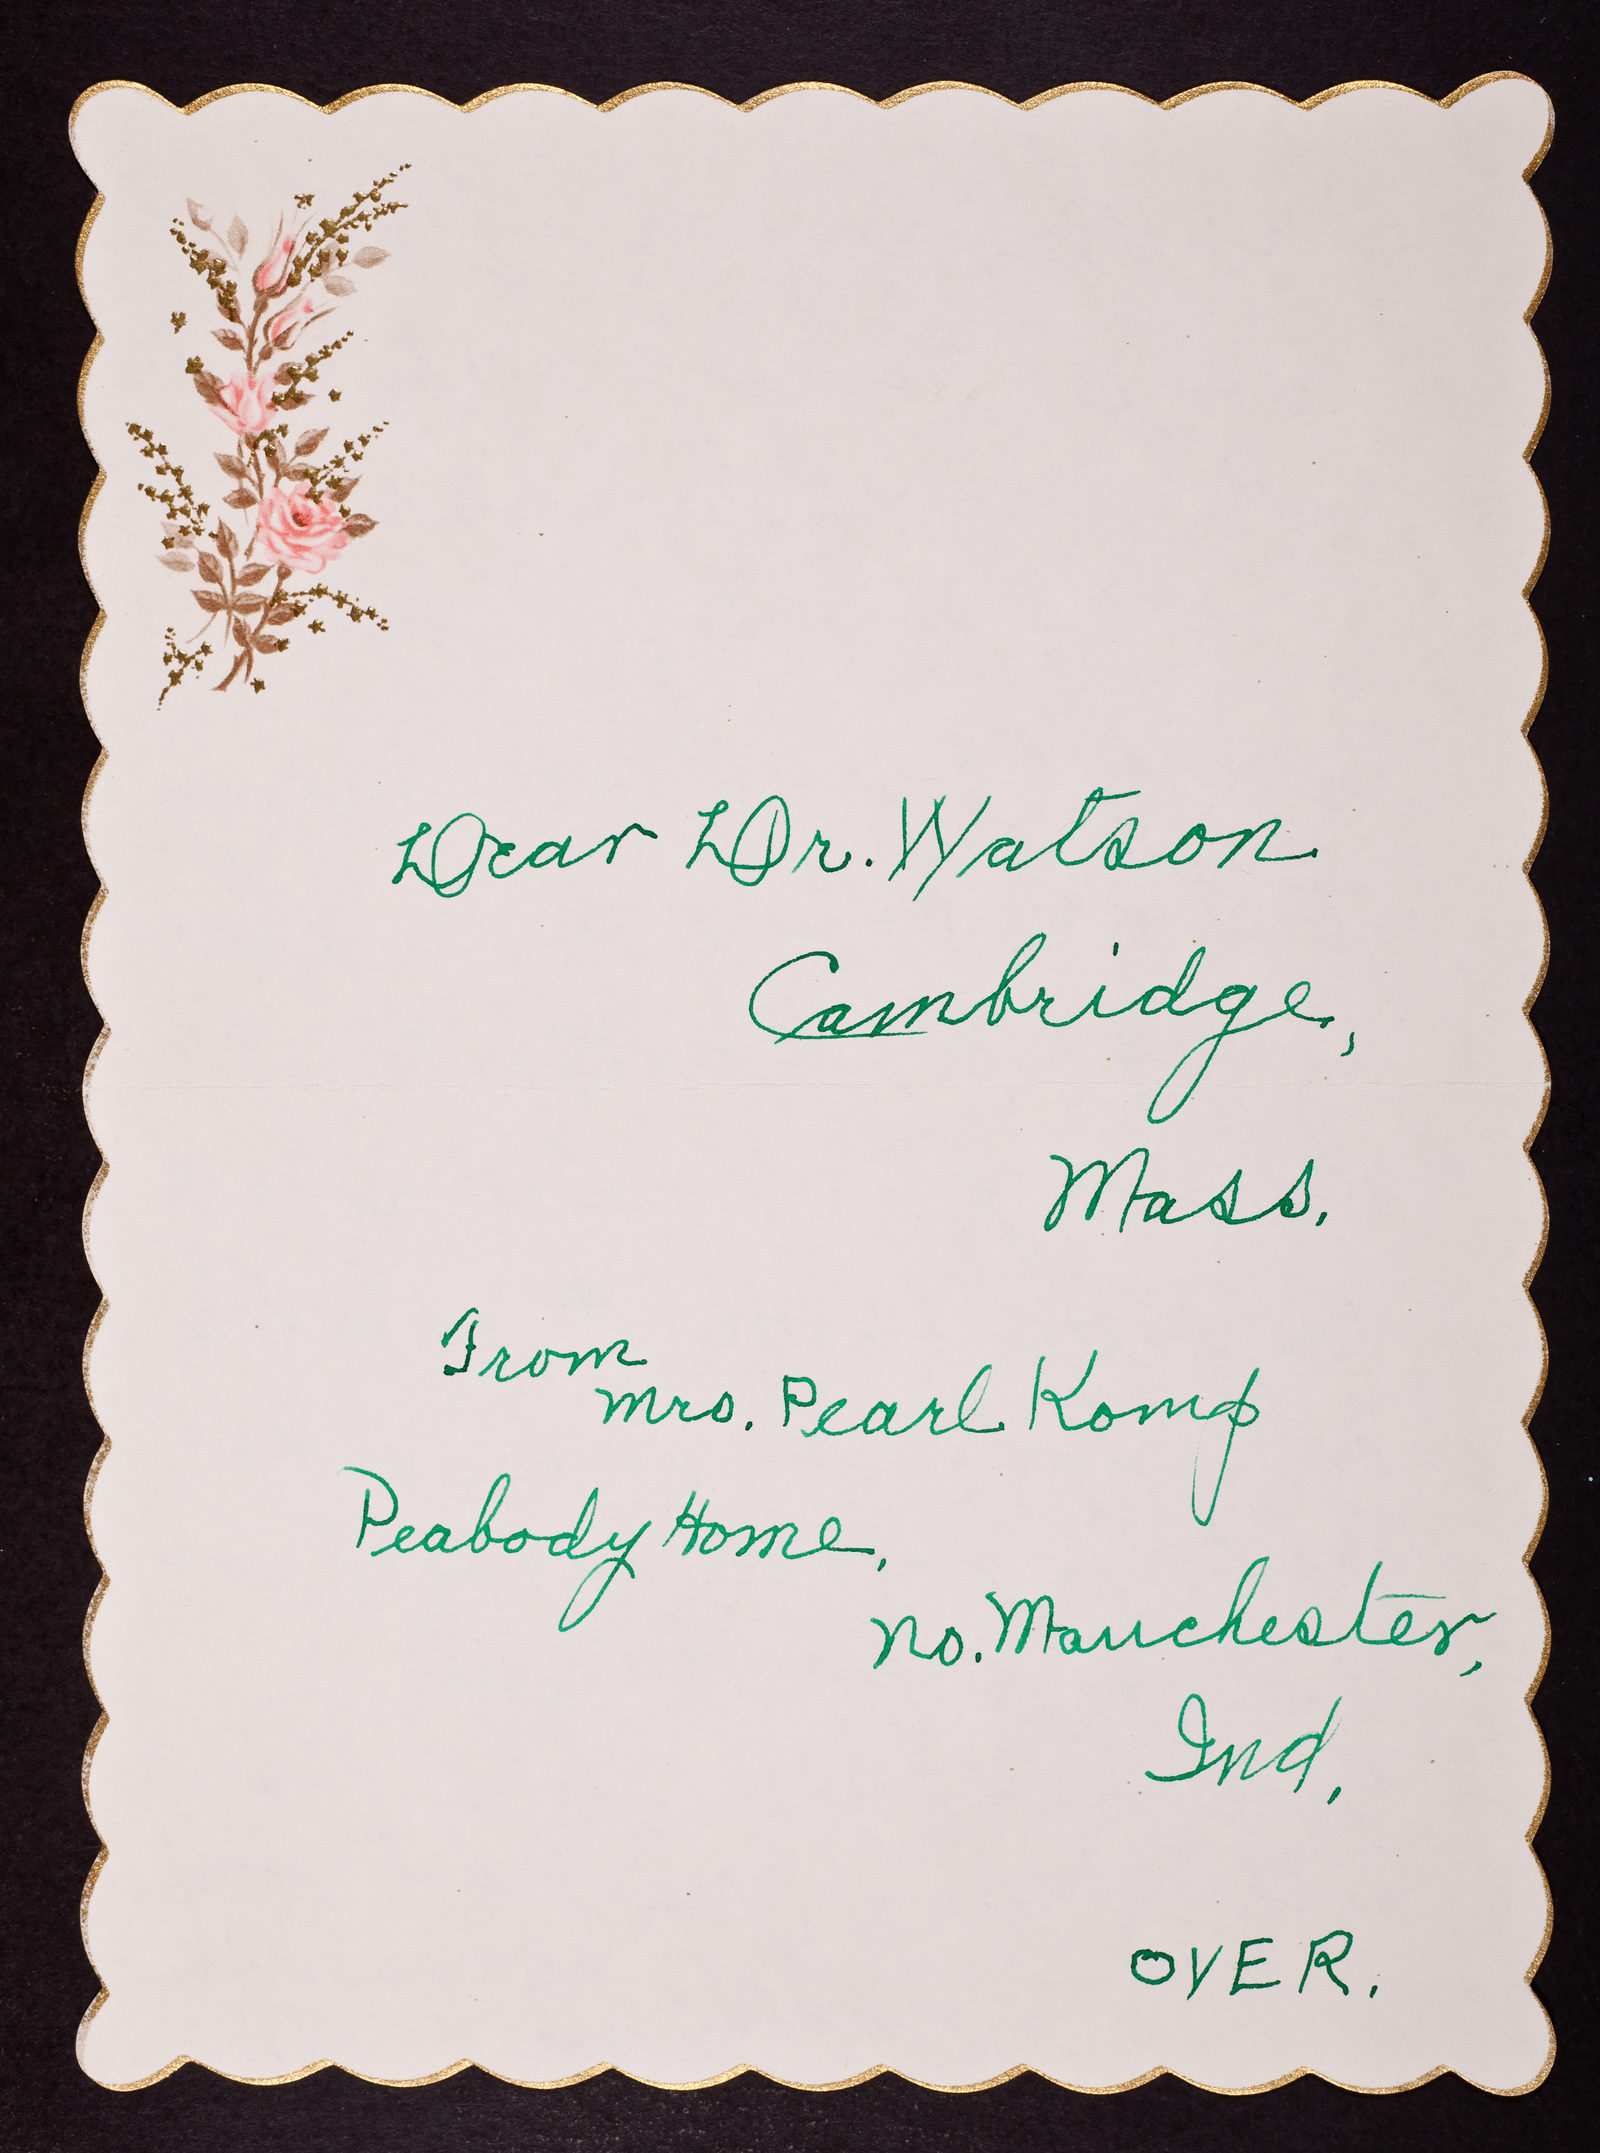 Dear Dr. Watson
Cambridge,
Mass.
From
Mrs. Pearl Komp
Peabody Home,
No. Manchester,
Ind.
OVER.